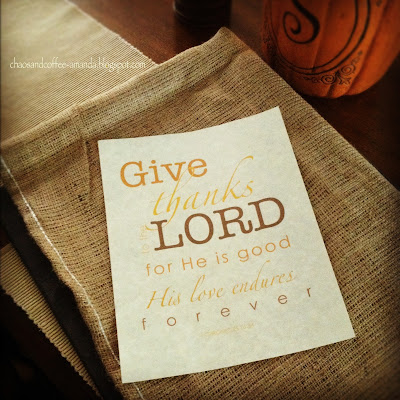 chaosandcoffee-amanda.blogspot.com
Give
thanks
LORD
for He is good
His love endures
forever